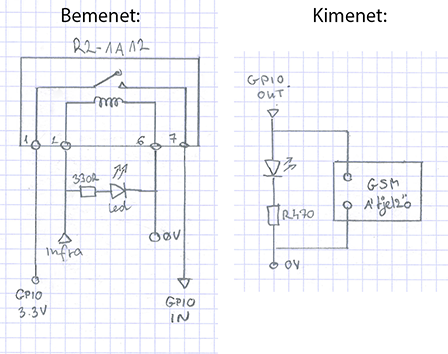 Bemenet:
R2-1A12
1
2
6
7
330R
Led
0V
Infra
GPIO
3.3V
GPIO
IN
Kimenet:
GPIO
OUT.
GSM
Átjelző
R470
0V